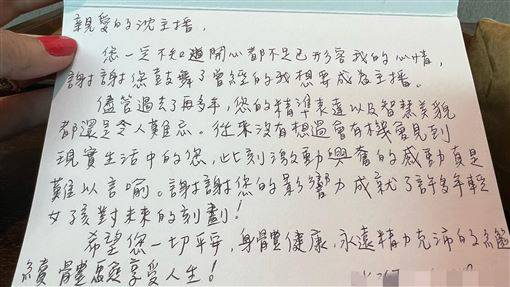 親愛的沈主播,
您一定不知道開心都不足已形容我的心情,
謝謝您鼓舞了曾經的我想要成為主播。
儘管過去了再多年,您的精準表達以及智慧美貌
都還是令人難忘。從來沒有想過會有機會見到
現實生活中的您,此刻激動興奮的感動真是
難以言喻。謝謝您的影響力成就了許多年輕
女孩對未來的刻劃!
希望您一切平安,身體健康,永遠精力充沛的繼
續體驗享受人生!